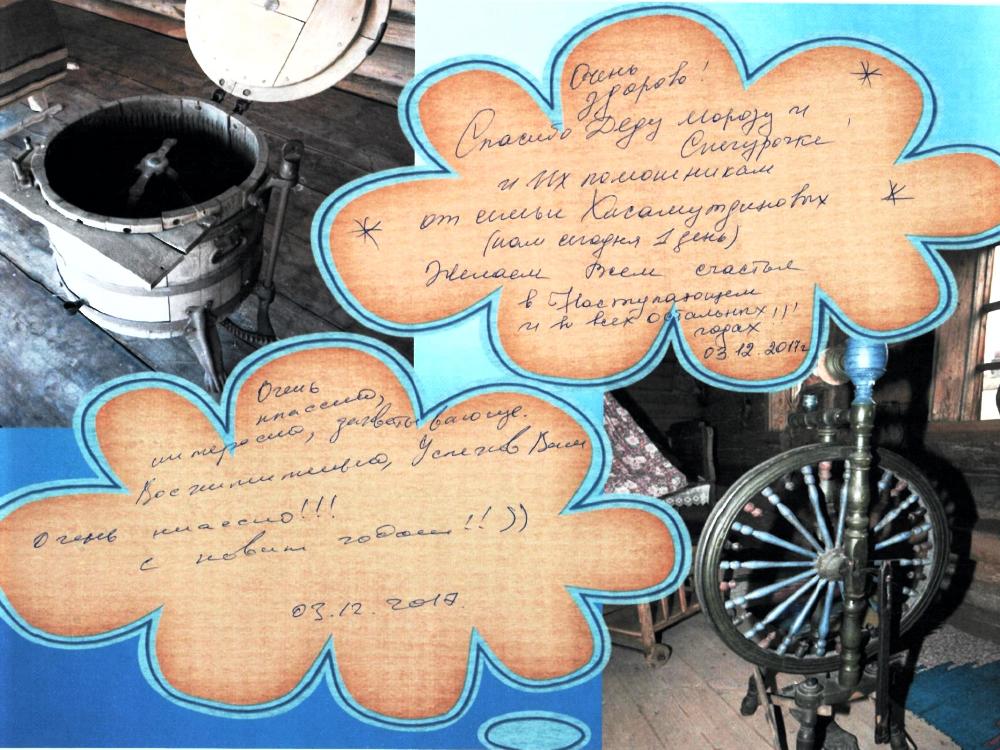 Очень
здорово!
Спасибо Деду Морозу и
Снегурочке,
и Их помошникам
от семьи Хисамутдиновых
(нам сегодня 1 день)
Желаем Всем счастья
в Наступающем
и во всех остальных!!!
годах
03.12.2017г
Очень
классно,
интересно, захватывающе.
Восхитительно, Успехов Вам
Очень классно!!!
с новым годом!!))
03.12.2017.